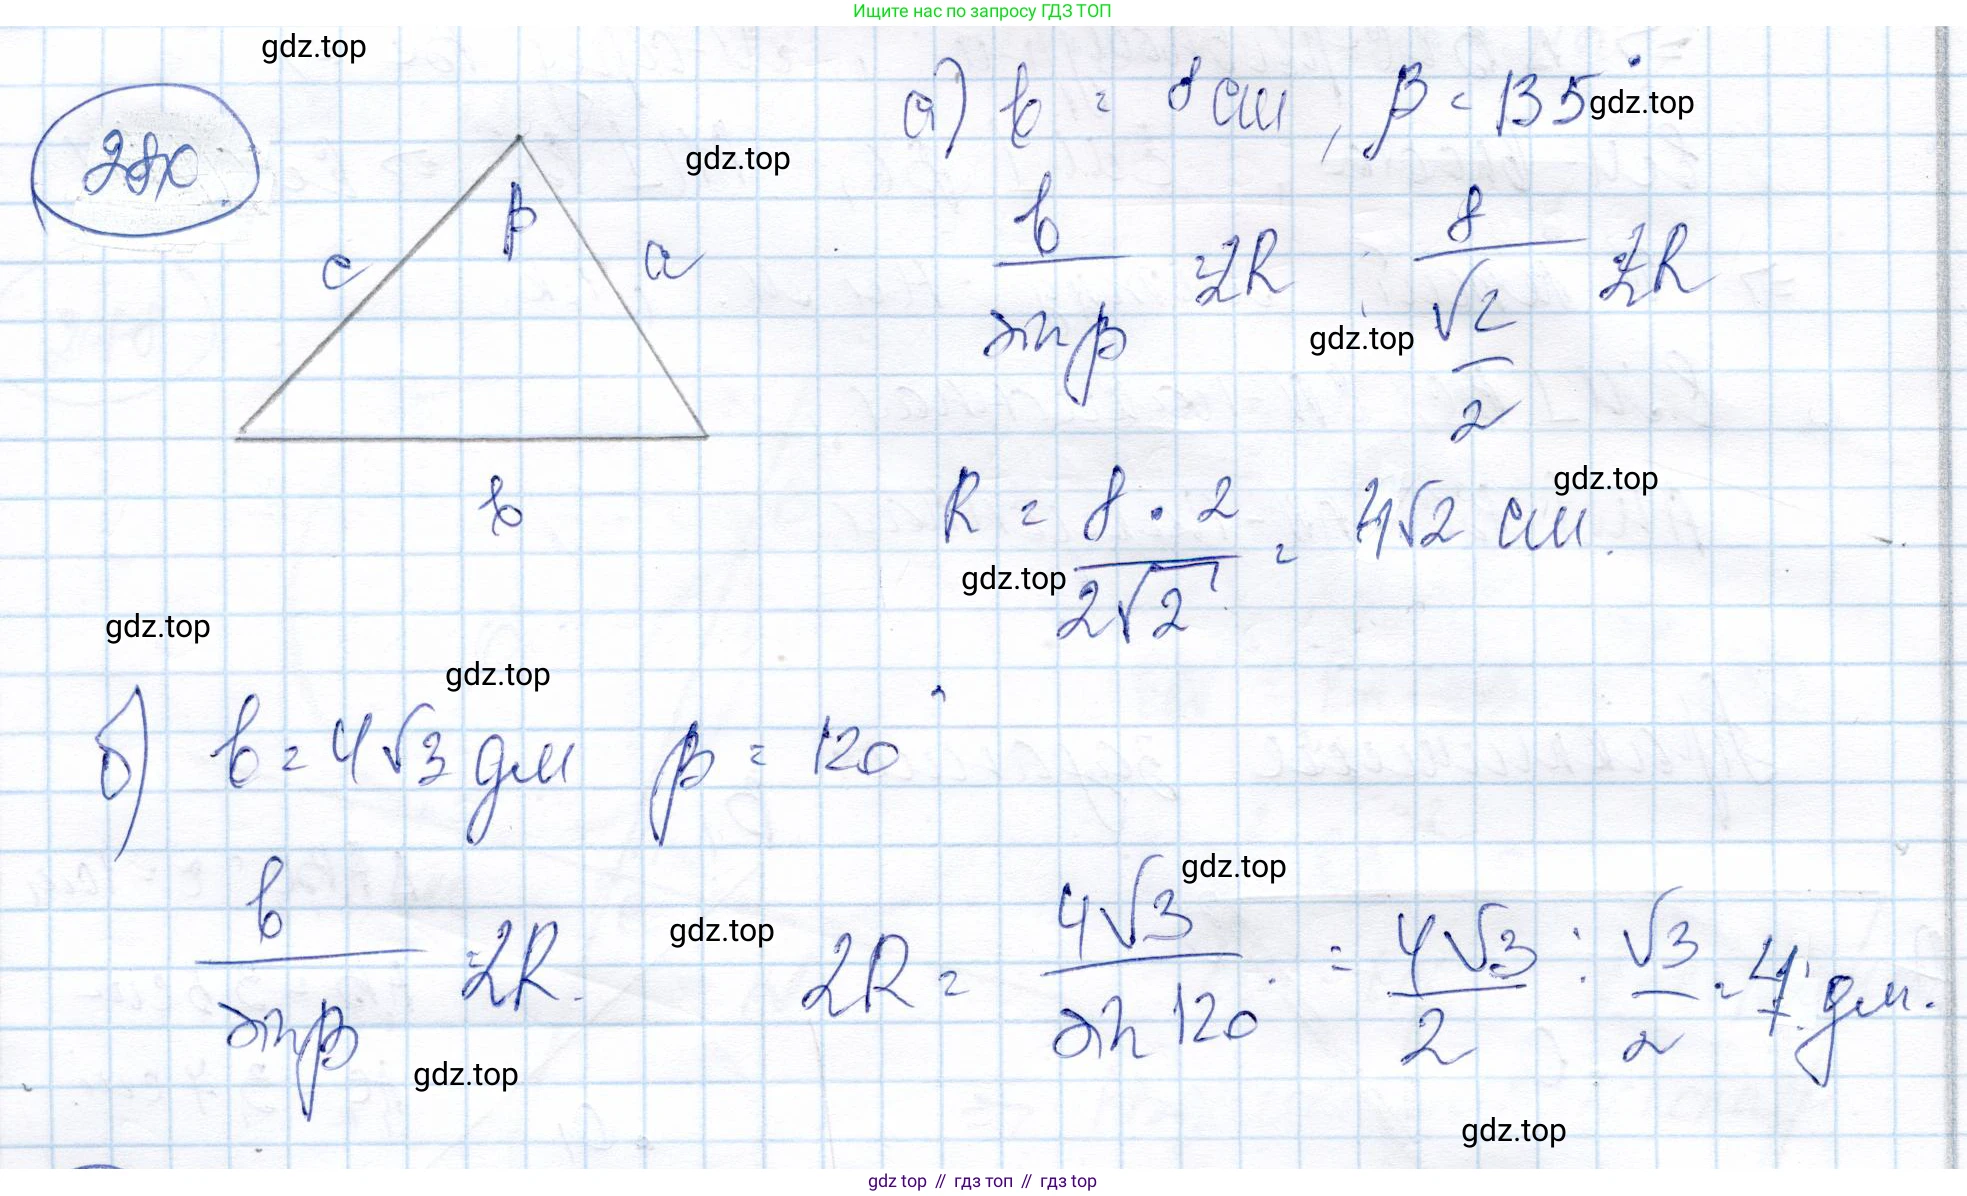 Ищите нас по запросу ГДЗ ТОП
gdz.top
280
a) b = 8 см, β = 135°
gdz.top
gdz.top
β
c
a
b
b / sin β = 2R ; 8 / (√2 / 2) = 2R
gdz.top
gdz.top
R = 8 · 2 / 2√2 = 4√2 см.
gdz.top
gdz.top
gdz.top
б) b = 4√3 дм β = 120°
gdz.top
b / sin β = 2R. 2R = 4√3 / sin 120° = 4√3 / 2 : √3 / 2 = 4 дм.
gdz.top
gdz.top
gdz.top
gdz top // гдз топ // гдз top